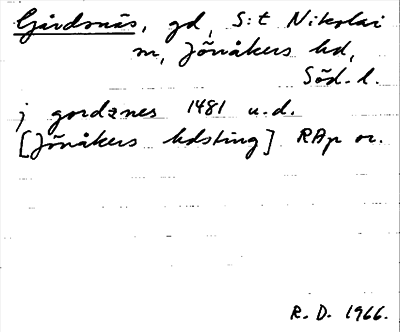 Gärdsnäs, gd, S:t Nikolai
m, Jönåkers hd,
Söd. l.
j gordznes 1481 u.d.
[Jönåkers hdsting] RAp or.
R. D. 1966.